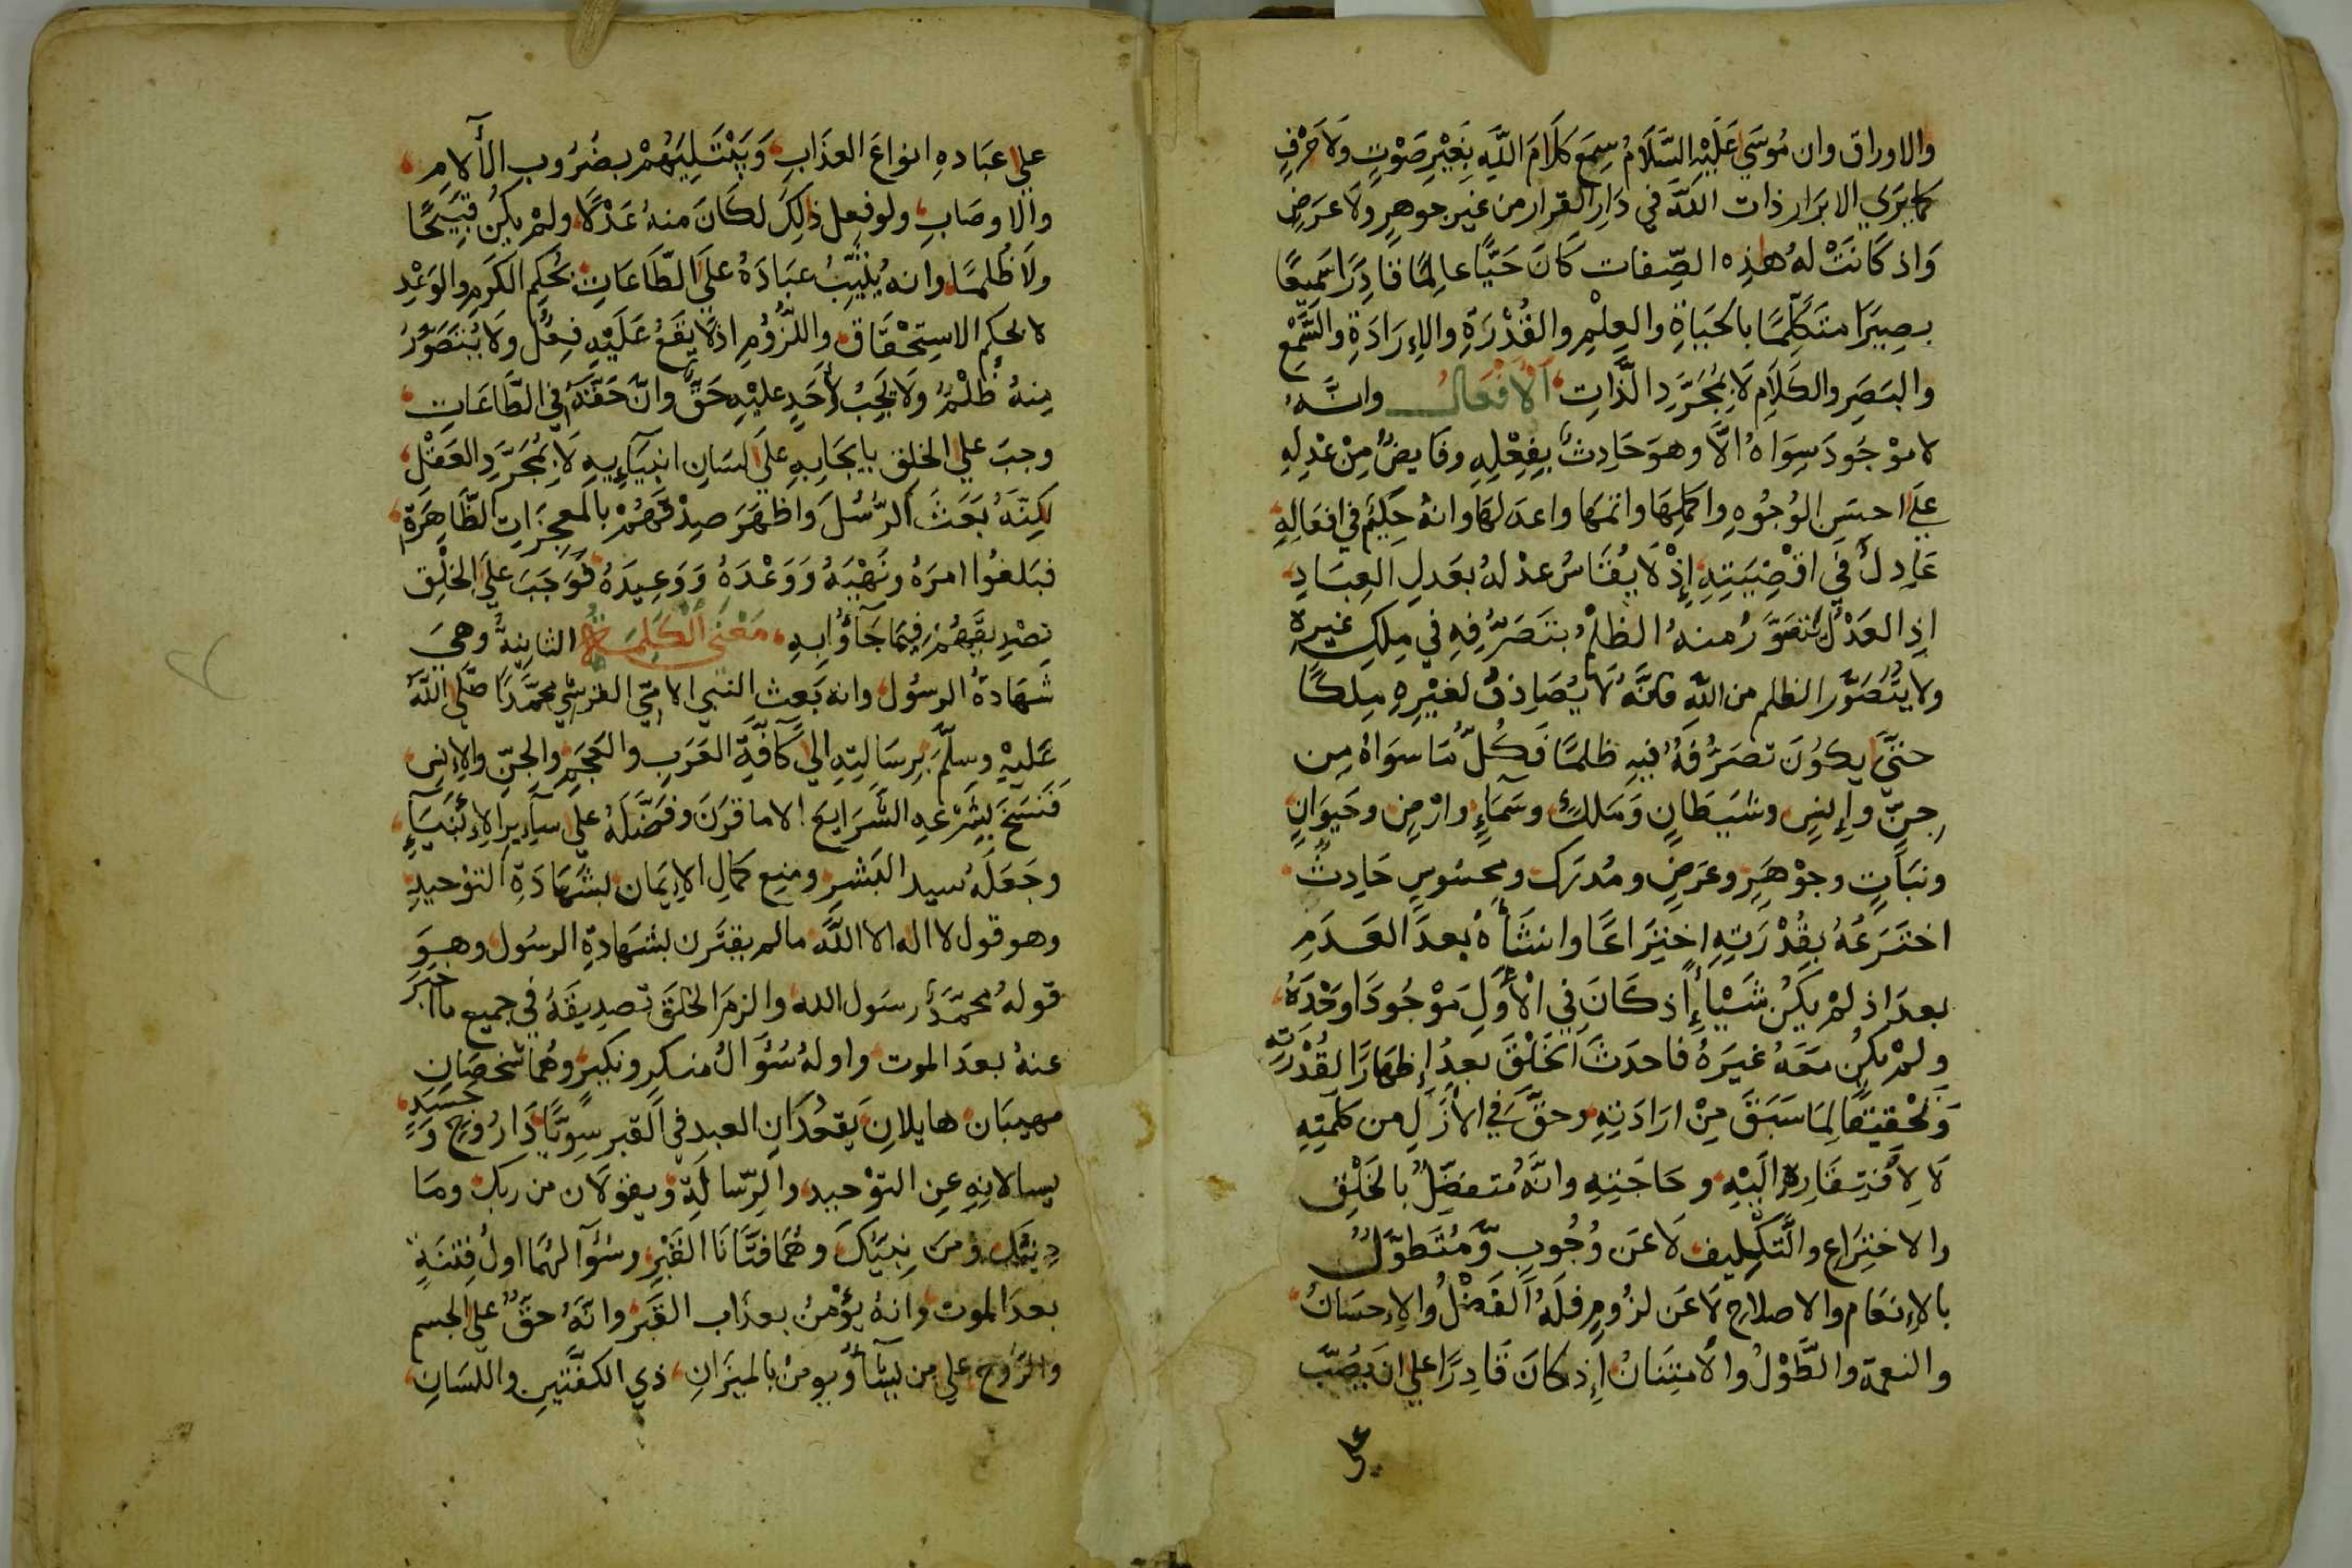 والاوراق وان مُوسَي عَلَيْهِ السَّلَامُ سِمَع كَلَامَ اللَّهِ بِغَيْرِ صَوْتٍ وَلَا حَرْفٍ
كما يَرَي الابرَار ذات اللَّه في دَارِ القرار من غير جوهرٍ ولا عرَضٍ
وَاذ كَانَتْ لهُ هذِه الصِّفات كَانَ حَيًّا عالِمًا قادِرًا سَمِيعًا
بصِيرًا متكلِّمًا بالحَيَاةِ والعِلْمِ والقُدْرَةِ والإِرَادَةِ والسَّمْع
والبَصَرِ والكَلَامِ لَا بِمُجَرَّدِ الذَّاتِ الأَفْعَالُ وانَّهُ
لا مَوْجُودَ سِوَاهُ الَّا وهوَ حَادِثٌ بِفِعْلِهِ وفايضٌ مِنْ عَدْلِهِ
عَلَي احسَنِ الوُجُوهِ واكملِهَا واتمهَا واعدَلهَا وانهُ حَكِيمٌ في افعَالِهِ
عَادِلٌ في اقْضِيَتِهِ إِذْ لَا يُقَاسُ عدْلهُ بعَدلِ العِبَادِ
اذ العَدْلُ يُتَصَوَّرُ منهُ الظلمُ بتَصَرُّفِهِ في مِلكِ غيرهِ
ولا يُتَصَوَّر الظلم من اللَّهِ فانَّهُ لَا يُصَادِفُ لغَيْرِهِ مِلكًا
حتيَّ يكُونَ تصَرُّفهُ فيهِ ظلمًا فكُلّ مَا سوَاهُ مِن
جِنّ وإِنسٍ وشيَطَانٍ وَمَلكٍ وسَمَاءٍ وارْضٍ وحَيوَانٍ
ونبَاتٍ وجوْهَرٍ وعَرَضٍ ومُدرَك ومحسُوسٍ حَادِثٌ
اختَرَعَهُ بقُدْرَتِهِ اختِرَاعًا وانشَأهُ بعدَ العَدَمِ
بعدَ اذ لمْ يَكُن شَيْأً إِذ كَانَ فِي الأَوَّلِ مَوْجُودًا وَحْدَهُ
ولمْ يكُن مَعَهُ غيرَهُ فاحدَثَ الخَلْقَ بعدُ إِظهَارًا لقُدْرَتِهِ
وَتحْقيقًا لِمَا سَبَقَ مِنْ ارَادَتِهِ وحقَّ في الأَزَلِ من كلَمَتِهِ
لَا لِأفْتِقَارِهِ الَيْهِ وحَاجَتِهِ وانَّهُ مُتفضِّلٌ بالخَلْقِ
والاختِرَاعِ والتَّكلِيف لَا عَن وُجُوبٍ وَّمُتَطوِّلٌ
بالإِنعَامِ والاصلاحِ لَا عَن لزُومٍ فلَهُ الفَضْلُ والإِحسَانُ
والنعمة والطَّوْلُ والأمتِنَانُ إِذ كانَ قادِرًا علي انَ يَصُبَّ
على
علي عبَادهِ انواعَ العذَابِ وَيَبْتَلِيَهُمْ بضُرُوبِ الأَلامِ
والاوصَابِ ولو فعِل ذلِكَ لكَانَ منهُ عَدْلًا ولمْ يكُن قبَيحًا
ولَا ظُلمًا وانهُ يُثِيبُ عبَادَهُ علَي الطَّاعَاتِ بحُكم الكَرَمِ والوَعْدِ
لا بحُكم الاستِحْقاق واللُّزُومِ اذ لَا يَقَعُ عَلَيْهِ فِعْل ولَا يُتَصَوَّرُ
مِنهُ ظُلْمٌ ولَا يجَبُ لأَحَدٍ عليْهِ حَقّ وانَّ حَقَّهُ في الطَّاعَاتِ
وجبَ علي الخلق بايجَابِهِ علَي لسَانِ انبيَآءِيهِ لَا بِمُجَرَّدِ العَقْلِ
لَكِنَّهُ بَعَثَ الرُّسُلَ وَاظهَرَ صِدْقَهُمْ بالمعجِزَاتِ الظَّاهِرَة
فبَلغُوا امرَهُ ونَهْيَهُ وَوَعْدَهُ وَوَعِيدَهُ فَوَجَبَ علَي الخلْق
تصْدِيقهُمْ فِيمَا جَآؤُا بِهِ مَعْنَى الكَلِمَة الثانِيةُ وهيَ
شَهَادَةُ الرسُول وانه بَعث النبي الامّيّ القرشي محَمَّدًا صَلَّى اللَّهُ
عَلَيْهِ وسَلَّمَ بِرِسَالتِهِ الي كآفَّةِ العَرَبِ والعَجَمِ والجنِّ والإِنسِ
فَنَسَخَ بِشَرْعِهِ الشَّرَايِعَ الا ما قرّرَ وفضَّلَهُ علي سآيرِ الأَنبيَآءِ
وجَعَلَهُ سيد البَشرِ ومنع كمَالَ الإِيمَان بشَهَادَةِ التوْحيدِ
وهو قول لا اله الا اللَّه مالم يقترن بشهَادةِ الرسُول وهوَ
قولهُ محمَّدٌ رسَول الله والزمَ الخلقَ تصدِيقَهُ في جميع ما اخبَرَ
عنهُ بعدَ الموت واولهُ سُؤَالُ منكرٍ ونكيرٍ وهُما شخصَانِ
مهيبَان هايلان يقعُدَانِ العبد في القبر سويًّا ذَا رُوحٍ وَجَسَدٍ
يسالانِهِ عن التوْحيد والرّسالَةِ ويقولَان من ربك ومَا
دينك ومن نبيّك وهُمَا فتَّانا القَبْرِ وسُؤآلهُمَا اولُ فِتنَةٍ
بعدَ الموت وانهُ يؤْمنُ بعذاب القَبر وانَّهُ حقٌّ علي الجسم
والرُّوح علي من يشآء ويومنُ بالميزَانِ ذي الكفَّتينِ واللسَانِ